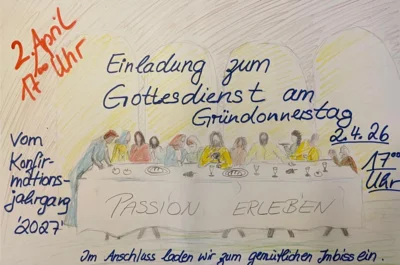 2. April
17⁰⁰ Uhr
Einladung zum
Gottesdienst am
Gründonnerstag
2.4.26
17⁰⁰
Uhr
Vom
Konfir-
mations-
jahrgang
'2027'
PASSION ERLEBEN
Im Anschluss laden wir zum gemütlichen Imbiss ein.